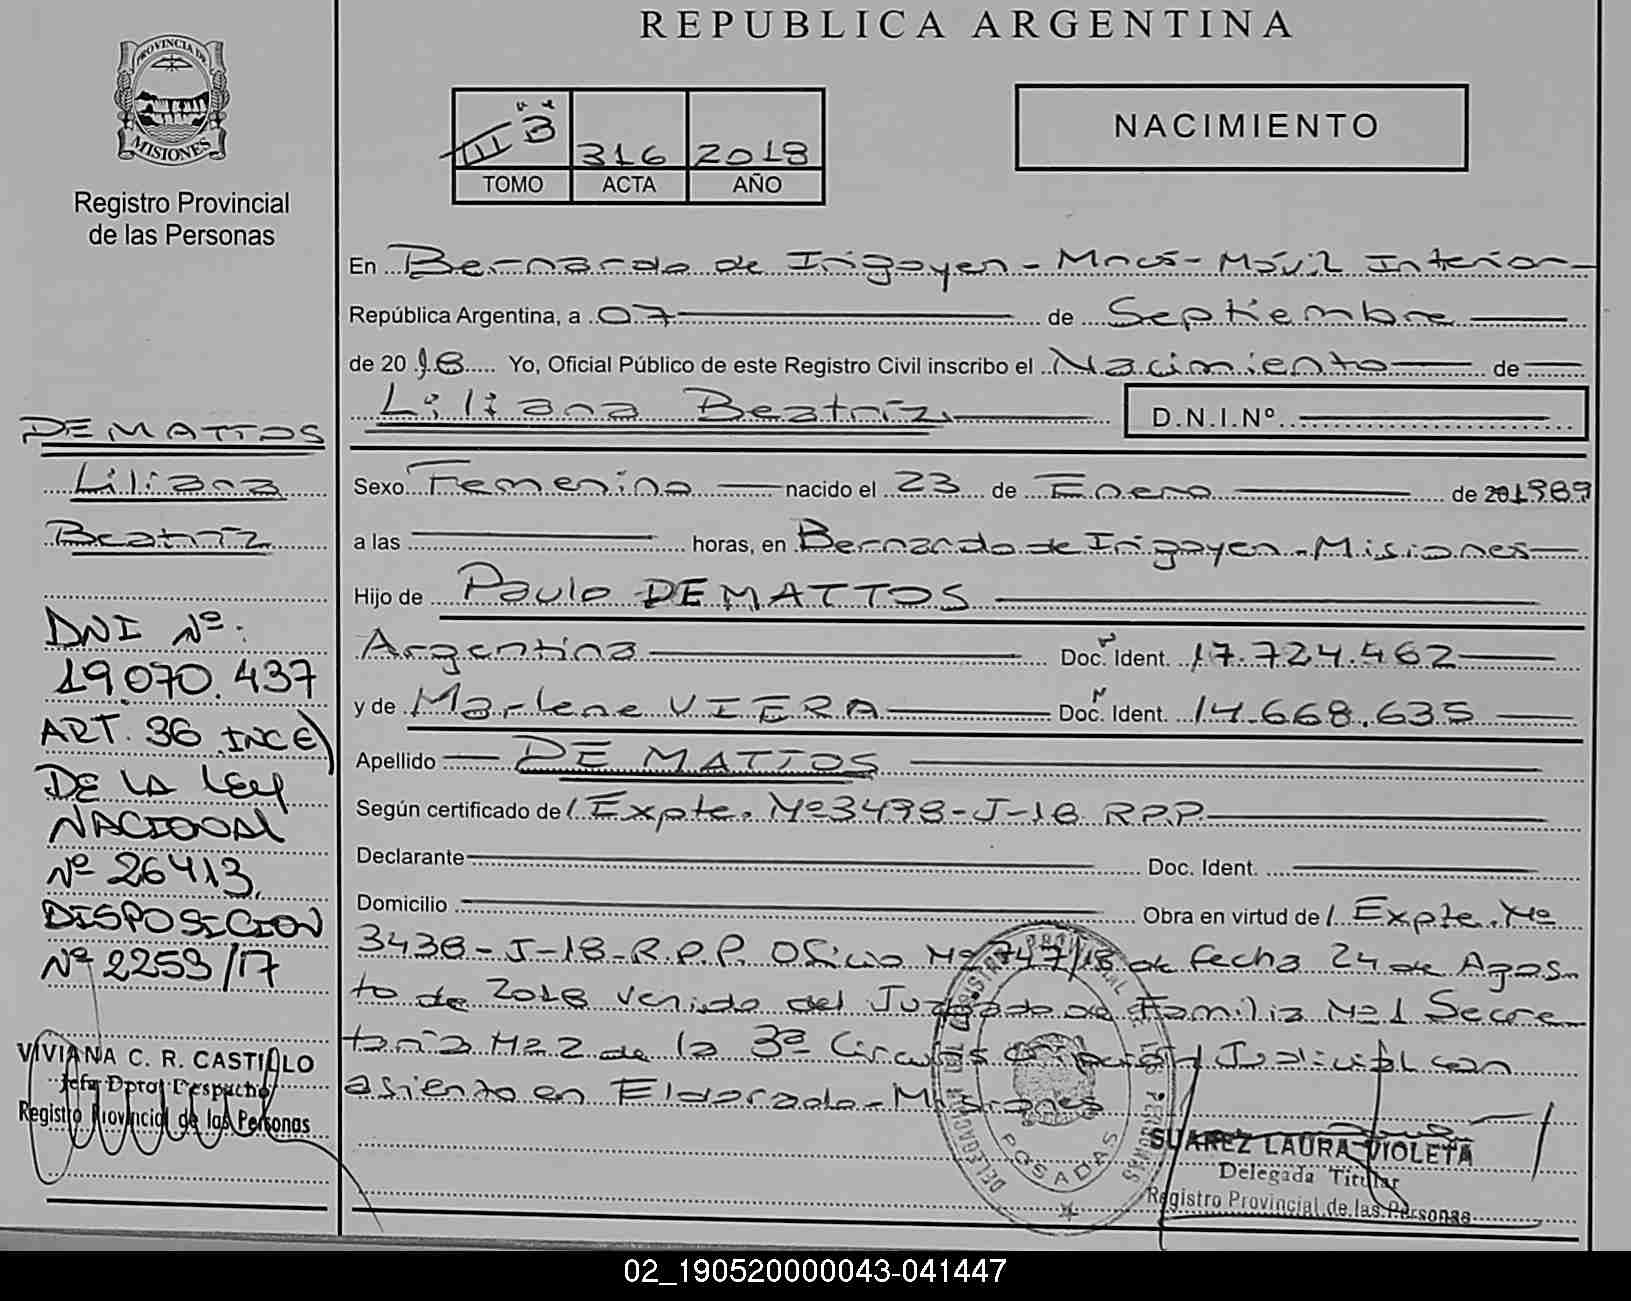 REPUBLICA ARGENTINA
PROVINCIA DE
MISIONES
Registro Provincial
de las Personas
III B
316
2018
TOMO
ACTA
AÑO
NACIMIENTO
En Bernardo de Irigoyen - Mnes - Móvil Interior
República Argentina, a 07 de Septiembre
de 2018 Yo, Oficial Público de este Registro Civil inscribo el Nacimiento de
Liliana Beatriz
D.N.I.Nº
Sexo Femenino nacido el 23 de Enero de 1989
a las horas, en Bernardo de Irigoyen - Misiones
Hijo de Paulo DE MATTOS
Argentina Doc. Ident. 17.724.462
y de Marlene VIERA Doc. Ident. 14.668.635
Apellido DE MATTOS
Según certificado de Expte. Nº 3498-J-18 R.P.P.
Declarante Doc. Ident.
Domicilio Obra en virtud de Expte. Nº
3438-J-18-R.P.P. Oficio Nº 747/18 de fecha 24 de Agos-
to de 2018 venido del Juzgado de Familia Nº 1 Secre-
taría Nº 2 de la 3ª Circunscripción Judicial con
asiento en Eldorado - Misiones
DE MATTOS
Liliana
Beatriz
DNI Nº:
19.070.437
ART. 36 INC E)
DE LA LEY
NACIONAL
Nº 26413,
DISPOSICION
Nº 2253/17
VIVIANA C. R. CASTILLO
Jefa Dpto. Despacho
Registro Provincial de las Personas
POSADAS
SUAREZ LAURA VIOLETA
Delegada Titular
Registro Provincial de las Personas
02_190520000043-041447